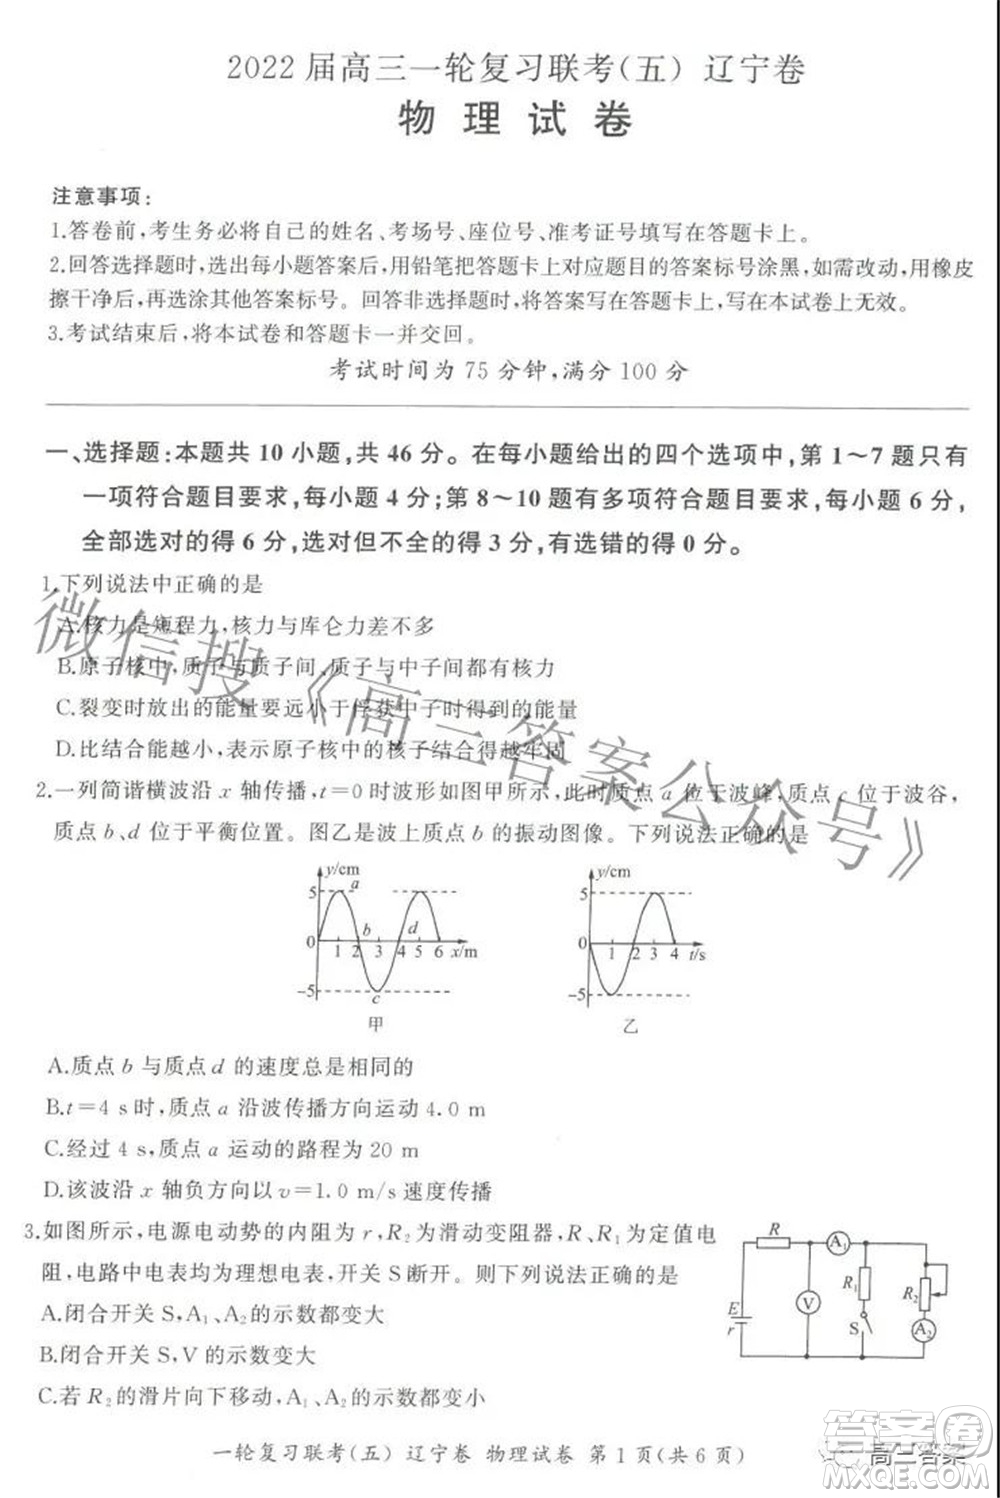 2022届高三一轮复习联考(五) 辽宁卷
物理试卷
注意事项:
1.答卷前,考生务必将自己的姓名、考场号、座位号、准考证号填写在答题卡上。
2.回答选择题时,选出每小题答案后,用铅笔把答题卡上对应题目的答案标号涂黑,如需改动,用橡皮
擦干净后,再选涂其他答案标号。回答非选择题时,将答案写在答题卡上,写在本试卷上无效。
3.考试结束后,将本试卷和答题卡一并交回。
考试时间为75分钟,满分100分
一、选择题:本题共10小题,共46分。在每小题给出的四个选项中,第1~7题只有
一项符合题目要求,每小题4分;第8~10题有多项符合题目要求,每小题6分,
全部选对的得6分,选对但不全的得3分,有选错的得0分。
1.下列说法中正确的是
A.核力是短程力,核力与库仑力差不多
B.原子核中,质子与质子间,质子与中子间都有核力
C.裂变时放出的能量要远小于俘获中子时得到的能量
D.比结合能越小,表示原子核中的核子结合得越牢固
2.一列简谐横波沿 x 轴传播,t=0时波形如图甲所示,此时质点 a 位于波峰,质点 c 位于波谷,
质点 b、d 位于平衡位置。图乙是波上质点 b 的振动图像。下列说法正确的是
y/cm
5
a
b
d
0
1 2 3 4 5 6 x/m
-5
c
甲
y/cm
5
0
1 2 3 4 t/s
-5
乙
A.质点 b 与质点 d 的速度总是相同的
B.t=4 s时,质点 a 沿波传播方向运动4.0 m
C.经过4 s,质点 a 运动的路程为20 m
D.该波沿 x 轴负方向以 v=1.0 m/s速度传播
3.如图所示,电源电动势的内阻为 r,R₂为滑动变阻器,R、R₁为定值电
阻,电路中电表均为理想电表,开关S断开。则下列说法正确的是
A.闭合开关S,A₁、A₂的示数都变大
B.闭合开关S,V的示数变大
C.若 R₂的滑片向下移动,A₁、A₂的示数都变小
R
A₁
R₁
R₂
V
E
r
S
A₂
一轮复习联考(五) 辽宁卷 物理试卷 第1页(共6页)
微信搜《高三答案公众号》
高三答案
MXQE.COM